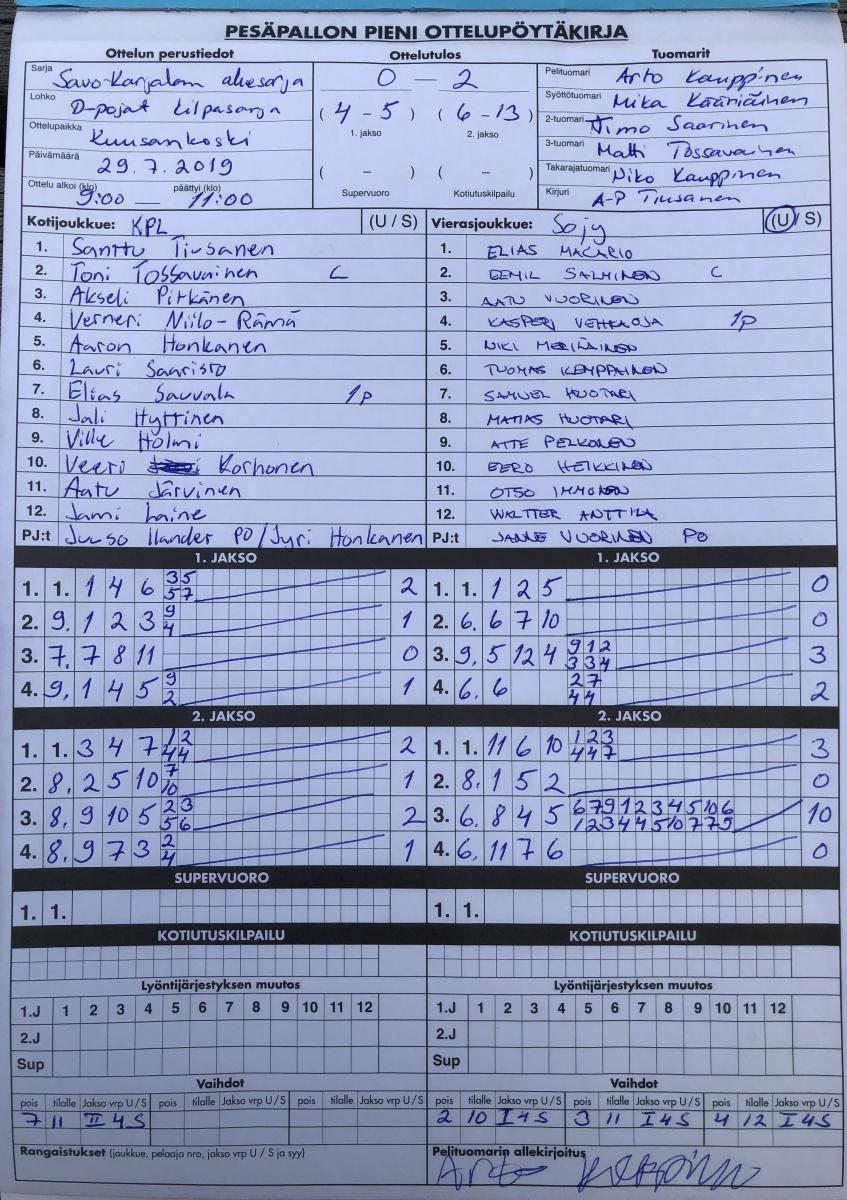 PESÄPALLON PIENI OTTELUPÖYTÄKIRJA
Ottelun perustiedot
Sarja Savo-Karjalan aluesarja
Lohko D-pojat kilpasarja
Ottelupaikka Kuusankoski
Päivämäärä 29.7.2019
Ottelu alkoi (klo) 9:00 — päättyi (klo) 11:00
Ottelutulos
0 — 2
( 4 - 5 ) ( 6 - 13 )
1. jakso 2. jakso
( - ) ( - )
Supervuoro Kotiutuskilpailu
Tuomarit
Pelituomari Arto Kauppinen
Syöttötuomari Mika Kääriäinen
2-tuomari Timo Saarinen
3-tuomari Matti Tossavainen
Takarajatuomari Niko Kauppinen
Kirjuri A-P Tiusanen
Kotijoukkue: KPL (U / S)
1. Santtu Tiusanen
2. Toni Tossavainen C
3. Akseli Pitkänen
4. Verneri Niilo-Rämä
5. Aaron Honkanen
6. Lauri Saaristo
7. Elias Sauvala 1P
8. Jali Hyttinen
9. Ville Holmi
10. Veeti Korhonen
11. Aatu Järvinen
12. Jami Laine
PJ:t Juuso Ilander PO/Jyri Honkanen
Vierasjoukkue: Sojy (U / S)
1. ELIAS MACARIO
2. EEMIL SALMINEN C
3. AATU VUORINEN
4. KASPERI VEHKAOJA 1P
5. NIKI MERILÄINEN
6. TUOMAS KEMPPAINEN
7. SAMUEL HUOTARI
8. MATIAS HUOTARI
9. ATTE PELKONEN
10. EERO HEIKKINEN
11. OTSO IMMONEN
12. WALTTER ANTTILA
PJ:t JANNE VUORINEN PO
1. JAKSO
1. 1. 1 4 6 35 2
57
2. 9. 1 2 3 9 1
4
3. 7. 7 8 11 0
4. 9. 1 4 5 9 1
2
1. JAKSO
1. 1. 1 2 5 0
2. 6. 6 7 10 0
3. 9. 5 12 4 9 1 2 3
3 3 4
4. 6. 6 2 7 2
4 4
2. JAKSO
1. 1. 3 4 7 1 2 2
4 4
2. 8. 2 5 10 7 1
10
3. 8. 9 10 5 2 3 2
5 6
4. 8. 9 7 3 2 1
4
2. JAKSO
1. 1. 11 6 10 1 2 3 3
4 4 7
2. 8. 1 5 2 0
3. 6. 8 4 5 6 7 9 1 2 3 4 5 10 6 10
1 2 3 4 4 5 10 7 7 9
4. 6. 11 7 6 0
SUPERVUORO
1. 1.
SUPERVUORO
1. 1.
KOTIUTUSKILPAILU
KOTIUTUSKILPAILU
Lyöntijärjestyksen muutos
1.J 1 2 3 4 5 6 7 8 9 10 11 12
2.J
Sup
Lyöntijärjestyksen muutos
1.J 1 2 3 4 5 6 7 8 9 10 11 12
2.J
Sup
Vaihdot
pois tilalle Jakso vrp U/S pois tilalle Jakso vrp U/S pois tilalle Jakso vrp U/S
7 11 II 4 S
Vaihdot
pois tilalle Jakso vrp U/S pois tilalle Jakso vrp U/S pois tilalle Jakso vrp U/S
2 10 I 4 S 3 11 I 4 S 4 12 I 4 S
Rangaistukset (joukkue, pelaaja nro, jakso vrp U / S ja syy)
Pelituomarin allekirjoitus
Arto Kauppinen